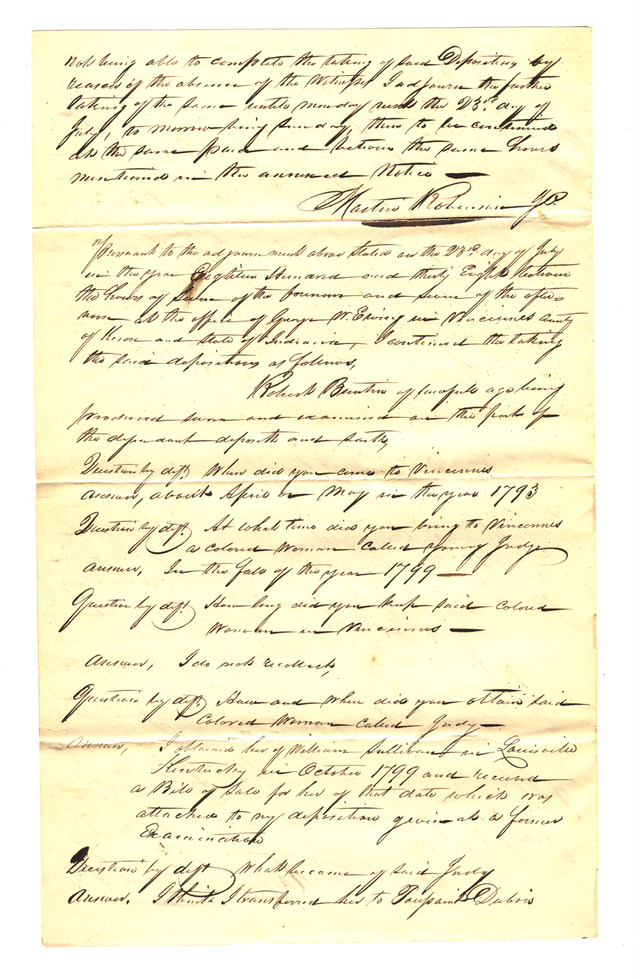 not being able to complete the taking of said Deposition by
reason of the absence of the Witness I adjourn the further
taking of the same until monday next the 23rd day of
July, to morrow being sunday, then to be continued
at the same place and between the same hours
mentioned in the annexed Notice —
Martin Robinson JP.
Pursuant to the adjournment above stated on the 23rd day of July
in the year Eighteen Hundred and thirty Eight between
the hours of seven of the forenoon and seven of the after
noon at the office of George W. Ewing in Vincennes county
of Knox and state of Indiana, I continued the taking
the said depositions as follows,
Robert Buntin of lawful age being
produced sworn and examined on the part of
the defendant deposeth and saith,
Question by deft When did you come to Vincennes
answer, about April or May in the year 1793
Question by deft At what time did you bring to Vincennes
a colored Woman called young Judy
answer, In the fall of the year 1799 —
Question by deft How long did you keep said colored
Woman in Vincennes —
answer, I do not recollect,
Question by deft. How and when did you obtain said
Colored Woman called Judy —
answer, I obtained her of William Sullivan in Louisville
Kentucky in October 1799 and received
a Bill of Sale for her of that date which was
attached to my deposition given at a former
Examination
Question by deft What became of said Judy
answer. I think I transferred her to Toussaint Dubois